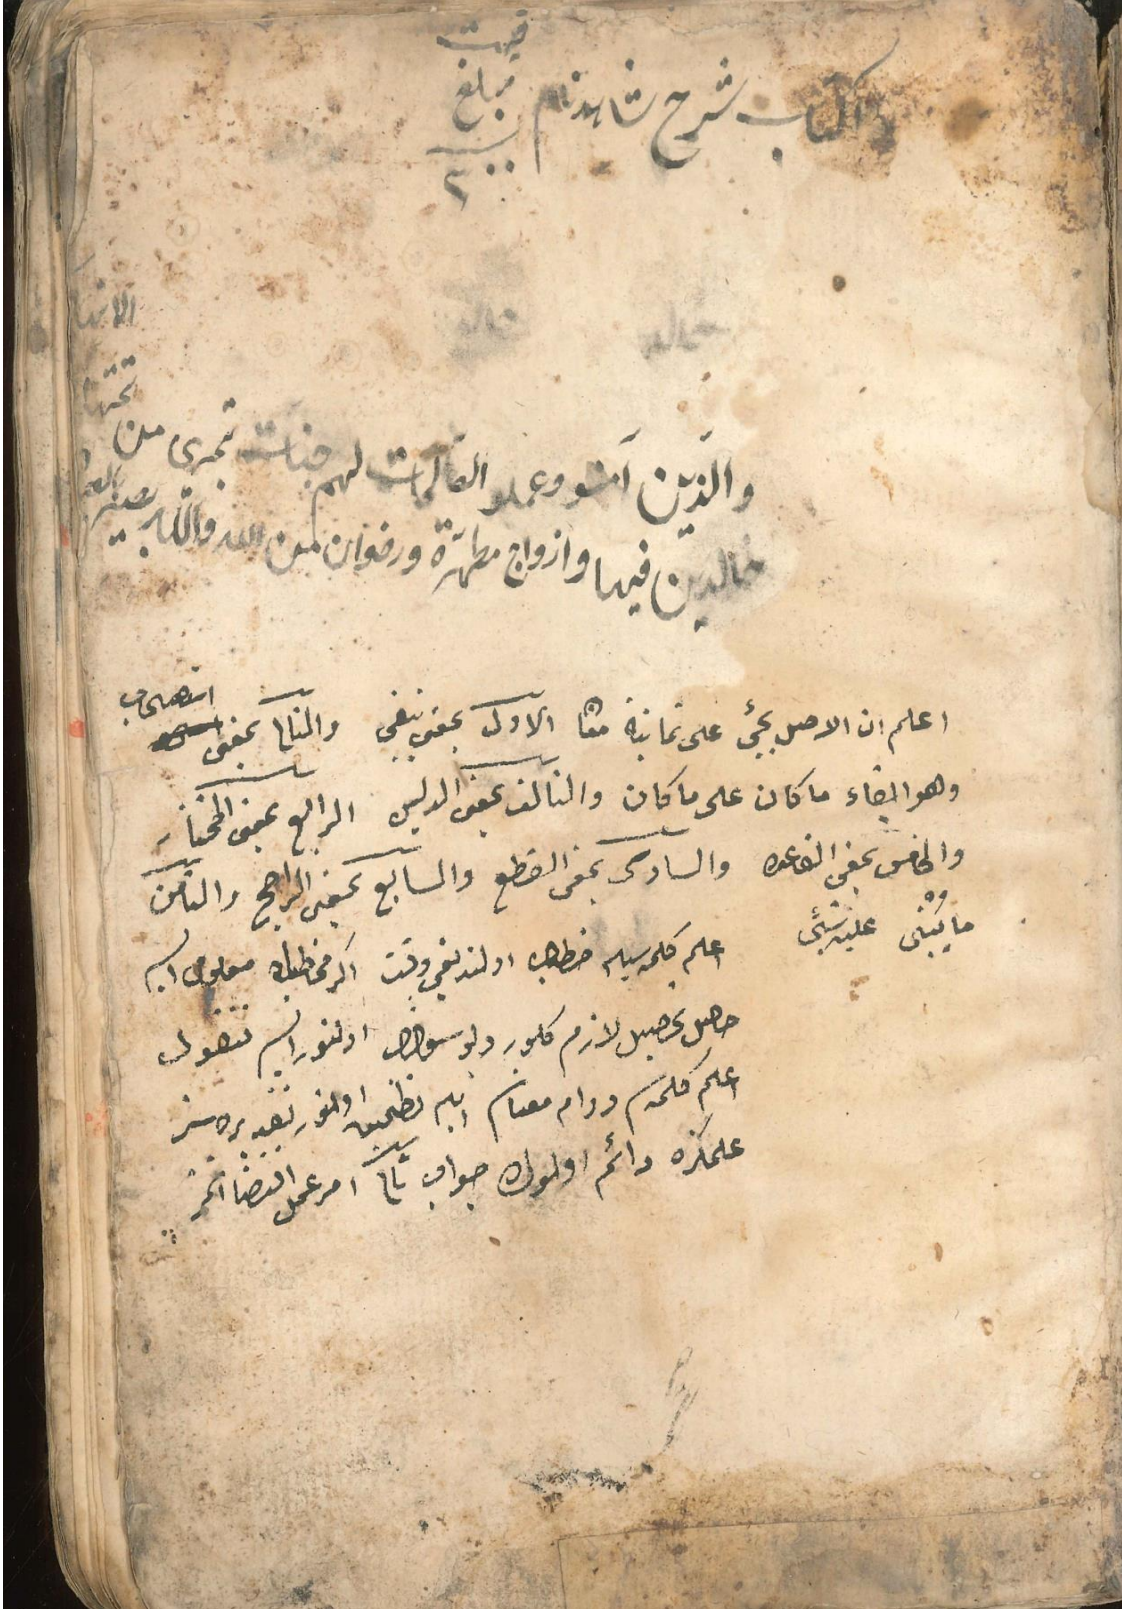 كتاب شرح شاهدنام
قيمت
مبلغ
٣٠٠
والذين آمنو وعملو الصالحات لهم جنات تجرى من تحتها الانهار
خالدين فيها وازواج مطهرة ورضوان من الله والله بصير
اعلم ان الاصل يجئ على ثمانية معا الاول بمعنى ينبغى والثانى بمعنى استصحاب
وهو ابقاء ما كان على ما كان والثالث بمعنى الدليل الرابع بمعنى المختار
والخامس بمعنى القاعده والسادس بمعنى القطع والسابع بمعنى الراجح والثامن
ما يبنى عليه شئ
اعلم كلمه سيله خطاب اولنديغى وقت اكر مخاطبك معلومى ايسه
حاصل تحصيل لازم كلور ديو سؤال اولنور ايسه نقول
اعلم كلمه سى دوام معناسى ايله اولنور سز
علمكزه دائم اولوك جواب ثانى امر عمل اقتضا ايتمز